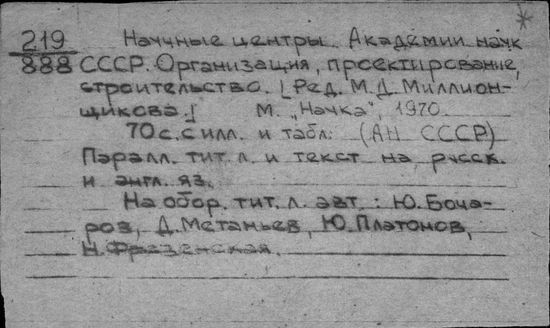 219 Научные центры Академии наук
888 СССР. Организация, проектирование,
строительство. [Ред. М.Д. Миллион-
щикова.] М. „Наука", 1970
70 с. с илл. и табл. (АН СССР)
Паралл. тит. л. и текст на русск.
и англ. яз.
На обор. тит. л. авт.: Ю. Боча-
ров, Д. Метаньев, Ю. Платонов,
Н. Фрезенская.